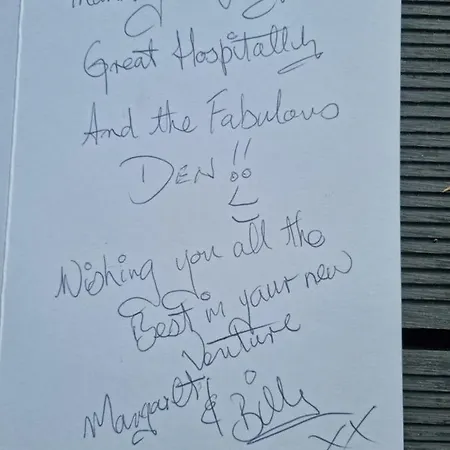 Great Hospitality
And the Fabulous
DEN !!
Wishing you all the
Best in your new
Venture
Margaret & Billy
XX